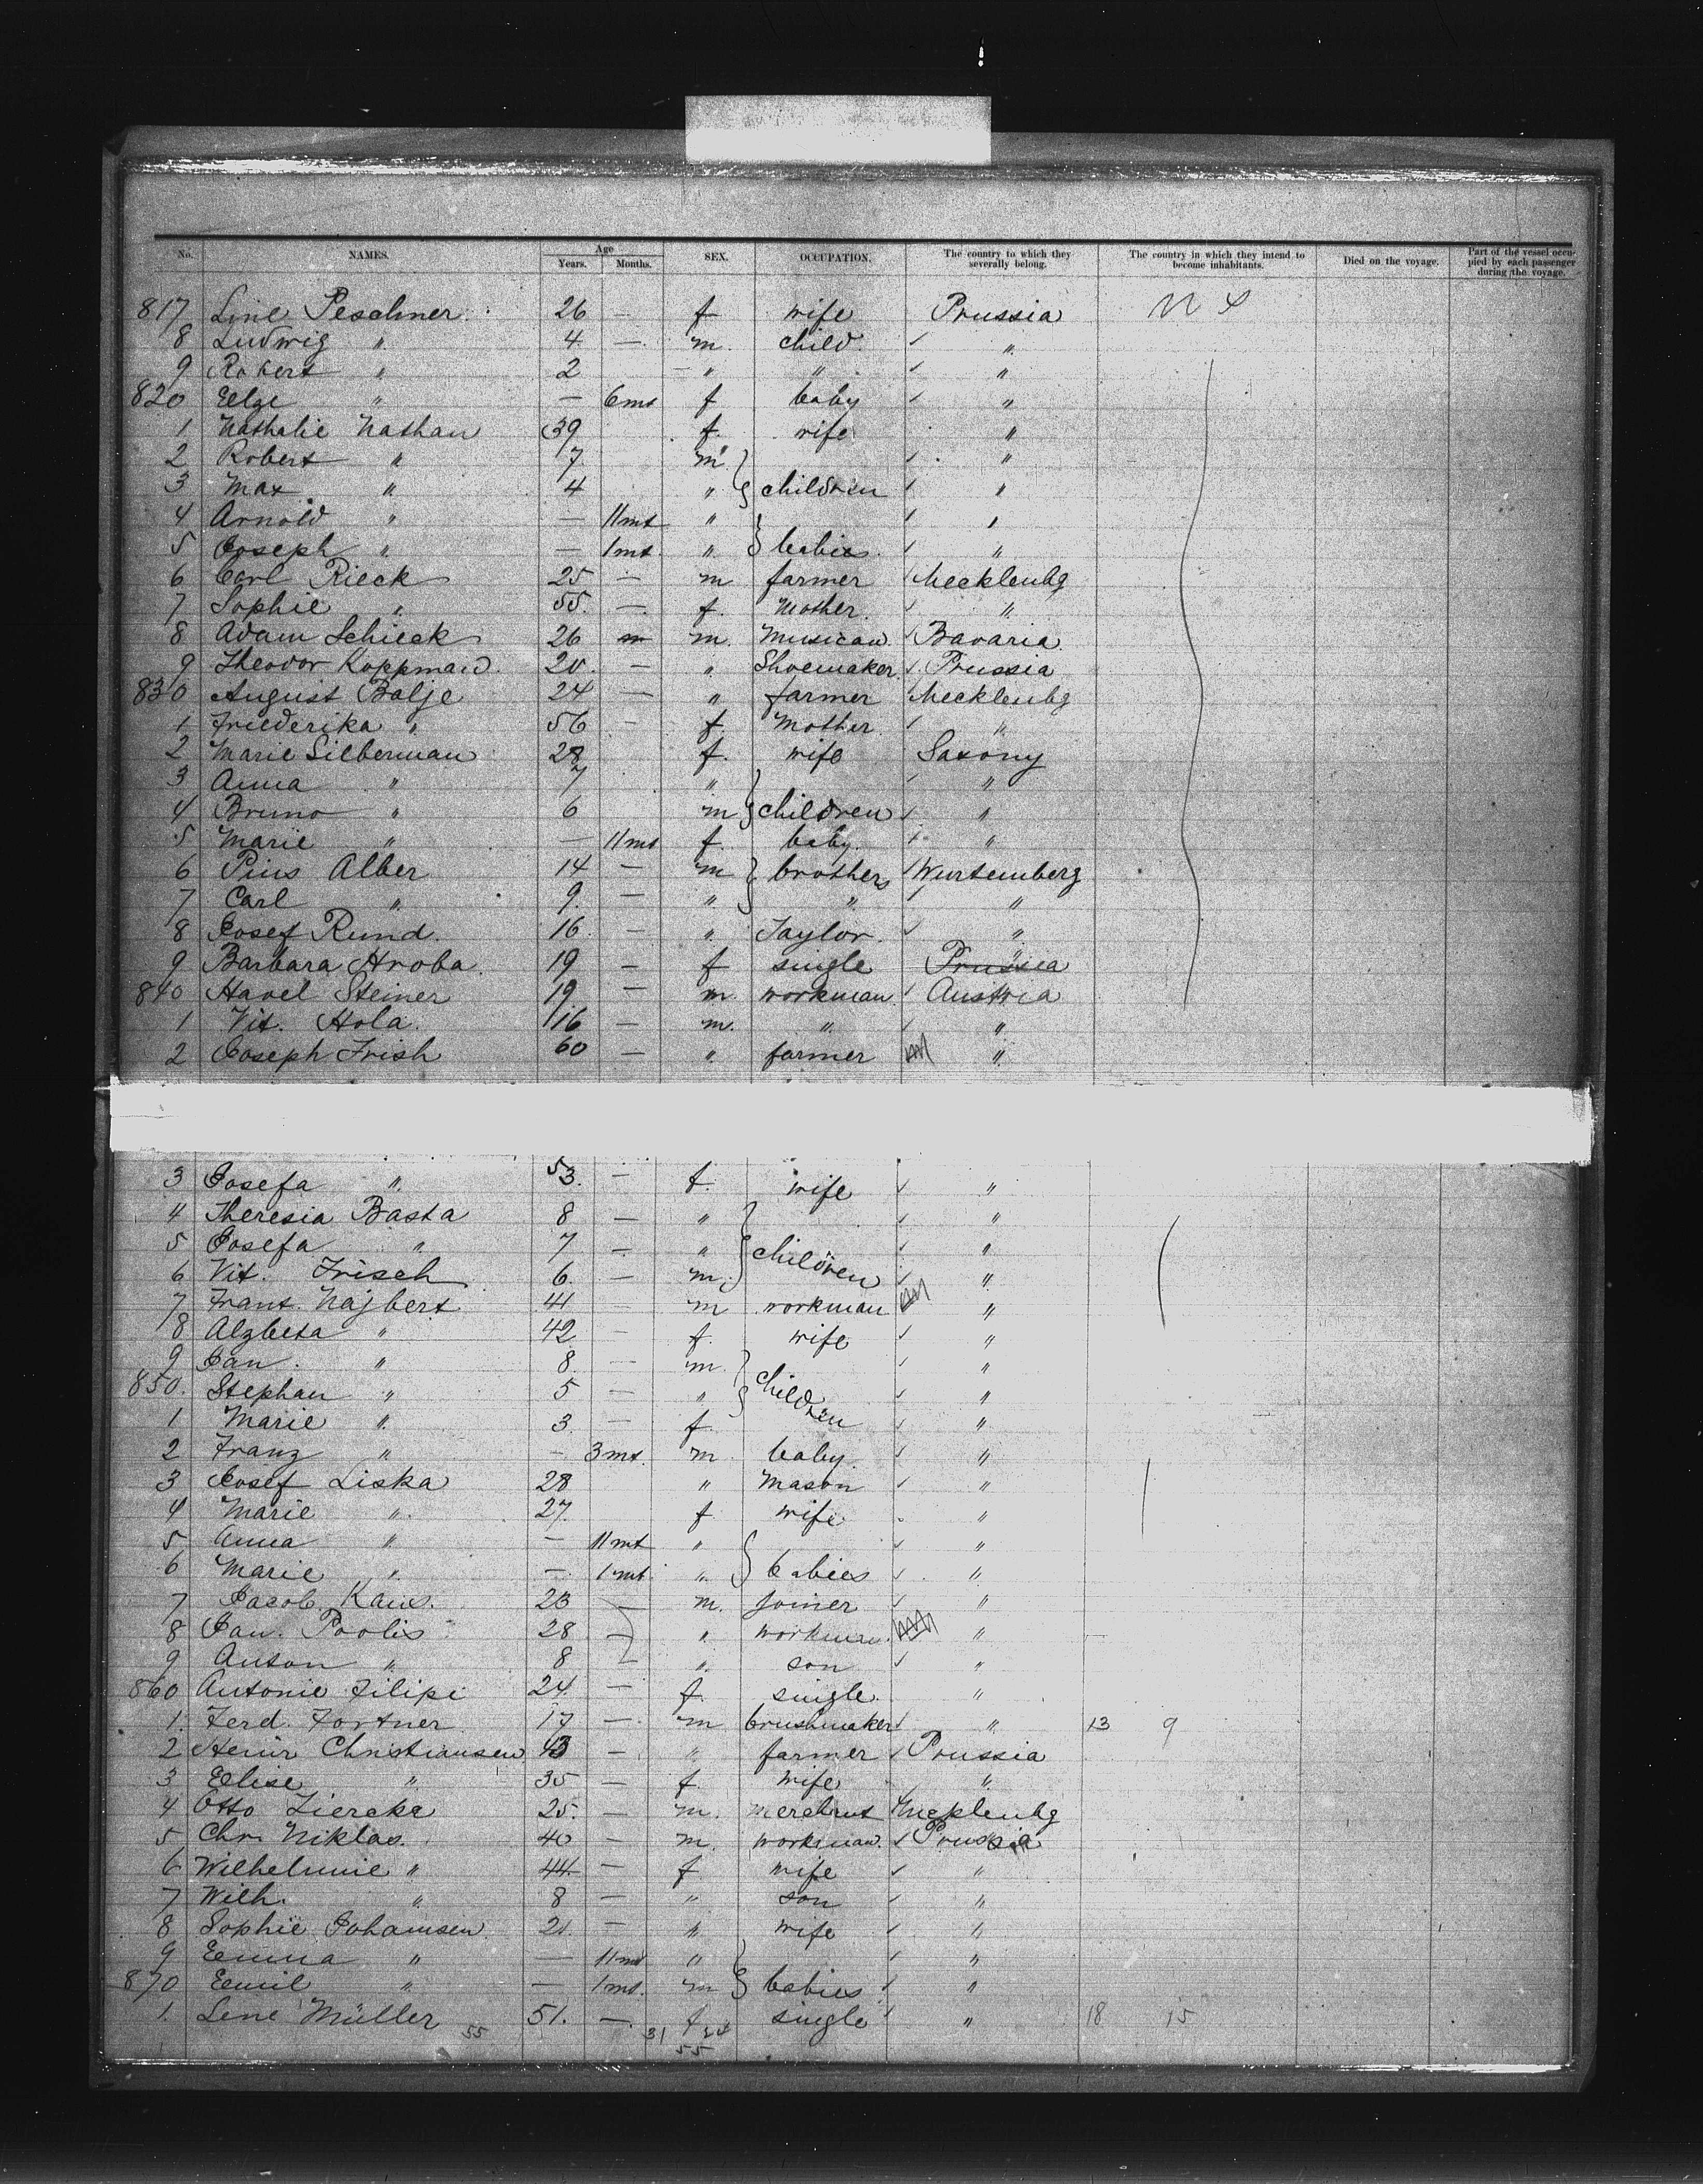 No. NAMES. Age Years. Months. SEX. OCCUPATION. The country to which they severally belong. The country in which they intend to become inhabitants. Died on the voyage. Part of the vessel occupied by each passenger during the voyage.
817 Line Peschner 26 — f wife Prussia
8 Ludwig " 4 — m. child "
9 Robert " 2 — " " "
820 Eelge " — 6 mt f baby "
1 Nathalie Nathan 39 f. wife "
2 Robert " 7 m "
3 Max " 4 " children "
4 Arnold " — 11 mt " "
5 Joseph " — 1 mt. " babies "
6 Carl Rieck 25 — m farmer Mecklenbg
7 Sophie " 55. — f. Mother "
8 Adam Schieck 26 m. Musican Bavaria
9 Theodor Koppman 20. — " Shoemaker Prussia
830 August Balje 24 — " farmer Mecklenbg
1 Friederika " 56 — f. Mother "
2 Marie Silberman 28 f. wife Saxony
3 Anna " 7 " "
4 Bruno " 6 m children "
5 Marie " — 11 mt f. baby "
6 Pius Alber 14 — m brothers Wurtemberg
7 Carl " 9. — " " "
8 Josef Rund. 16. — " Taylor "
9 Barbara Hroba. 19 — f single Prussia
840 Havel Steiner 19. — m. workman Austria
1 Vit. Hola. 16 — m. " "
2 Joseph Frish 60 — " farmer "
3 Josefa " 53. — f. wife "
4 Theresia Basta 8 — " "
5 Josefa " 7 — " children "
6 Vit. Frisch 6. — m. "
7 Frant. Najbert 41 m workman "
8 Alzbeta " 42 — f. wife "
9 Jan. " 8. — m. "
850. Stephan " 5 — " children "
1 Marie " 3. — f "
2 Franz " — 3 mt. m baby. "
3 Josef Liska 28 " Mason "
4 Marie " 27. f wife "
5 Anna " — 11 mt " "
6 Marie " — 1 mt. " babies "
7 Jacob Kaus. 23 — m. joiner "
8 Jan. Poolis 28 — " workman. "
9 Anton " 8 — " son "
860 Antonie Filipi 24. — f. single. "
1. Ferd. Fortner 17 — m brushmaker " 13 9
2 Heinr Christiansen 43 — " farmer Prussia
3 Eelise " 35 — f. wife "
4 Otto Ziercke 25. — m. Merchant Mecklenbg
5 Chr. Niklas. 40 — m. workman Prussia
6 Wilhelmine " 44 — f wife "
7 Wilh. " 8 — " son "
8 Sophie Johamsen 21. — " wife "
9 Eemma " — 11 mt " "
870 Eemil " — 1 mt. m babies "
1. Lene Müller 51. — f single " 18 15
55 31 24
55